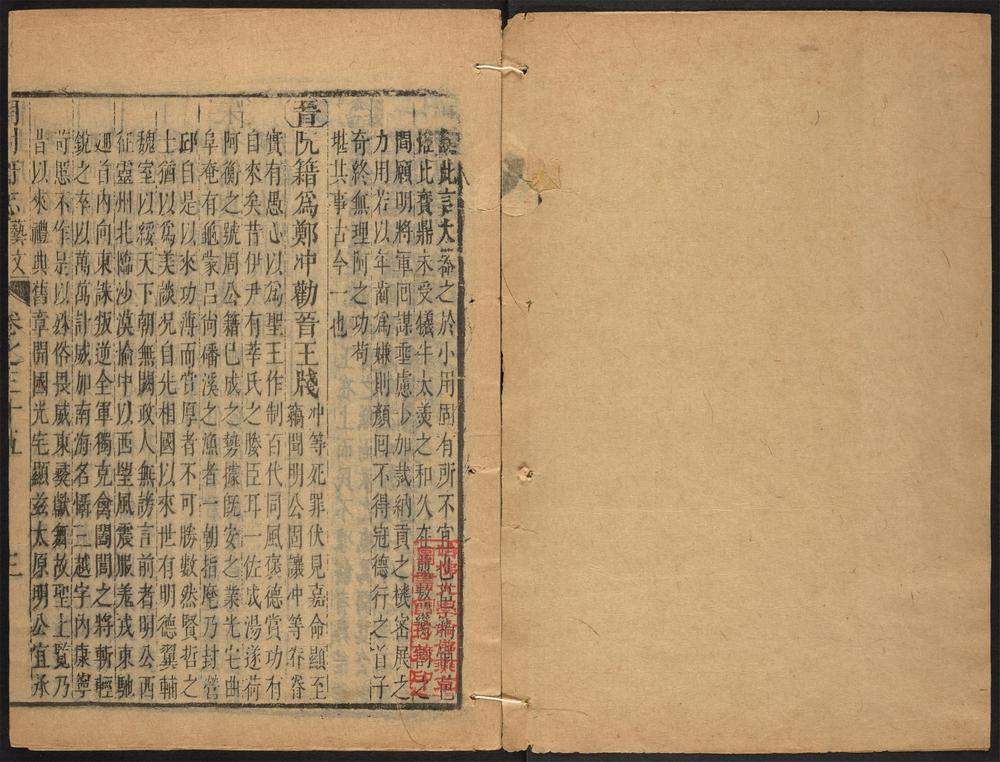 此言大器之於小用固有所不宜
此寶鼎未受犠牛大羮之和久在
間願明將軍回謀垂慮少加裁納貢之機密展之
力用若以年齒爲嫌則顏回不得冠德行之首子
奇終無理阿之功苟
堪其事古今一也
晉阮籍爲鄭冲勸晉王牋冲等死罪伏見嘉命顯至
竊聞明公固讓冲等眷眷
實有愚心以爲聖王作制百代同風褒德賞功有
自來矣昔伊尹有莘氏之媵臣耳一佐成湯遂荷
阿衡之號周公籍已成之勢據旣安之業光宅曲
阜奄有龜蒙呂尚磻溪之漁者一朝指麾乃封營
邱自是以來功薄而賞厚者不可勝數然賢哲之
士猶以爲美談况自先相國以來世有明德翼輔
魏室以綏天下朝無闕政人無謗言前者明公西
征靈州北臨沙漠楡中以西望風震服羗戎東馳
廻首內向東誅叛逆全軍獨克禽闔閭之將斬輕
銳之卒以萬萬計威加南海名懾三越宇內康寧
苛慝不作是以殊俗畏威東夷獻舞故聖上覽乃
昔以來禮典舊章開國光宅顯兹太原明公宜承
志 藝文 卷之三十五 三